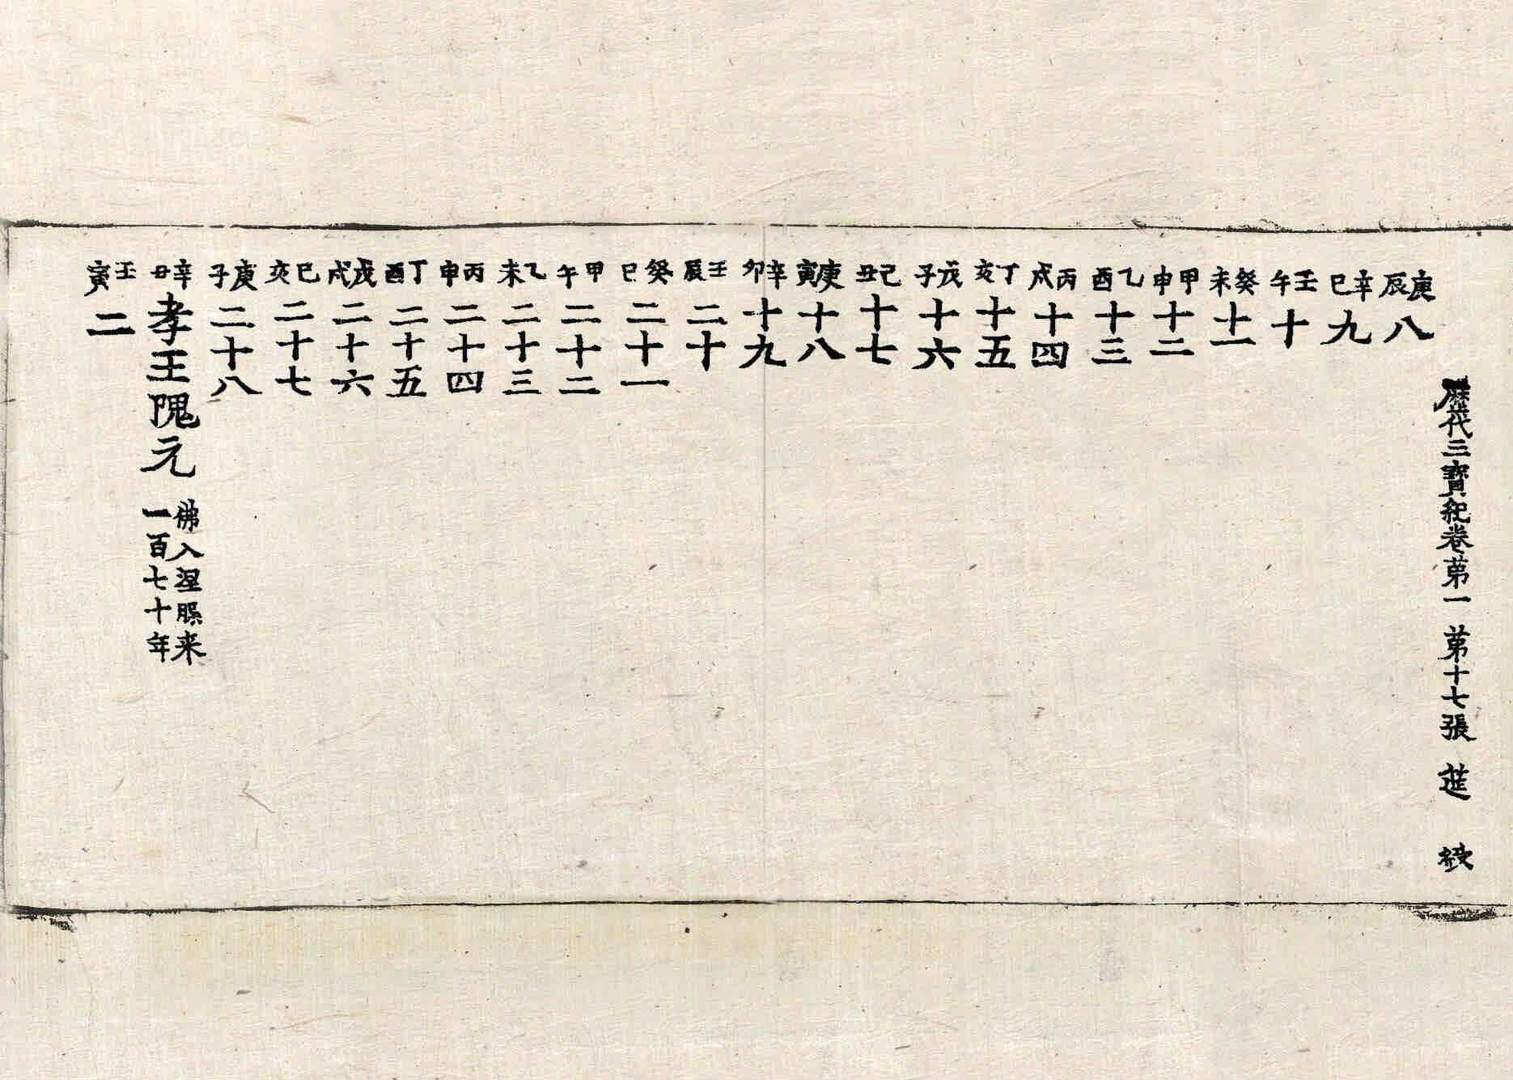 歷代三寶紀卷苐一 苐十七張 莚
庚辰 八
辛巳 九
壬午 十
癸未 十一
甲申 十二
乙酉 十三
丙戌 十四
丁亥 十五
戊子 十六
己丑 十七
庚寅 十八
辛卯 十九
壬辰 二十
癸巳 二十一
甲午 二十二
乙未 二十三
丙申 二十四
丁酉 二十五
戊戌 二十六
己亥 二十七
庚子 二十八
辛丑 孝王隗元 佛入涅槃来一百七十年
壬寅 二